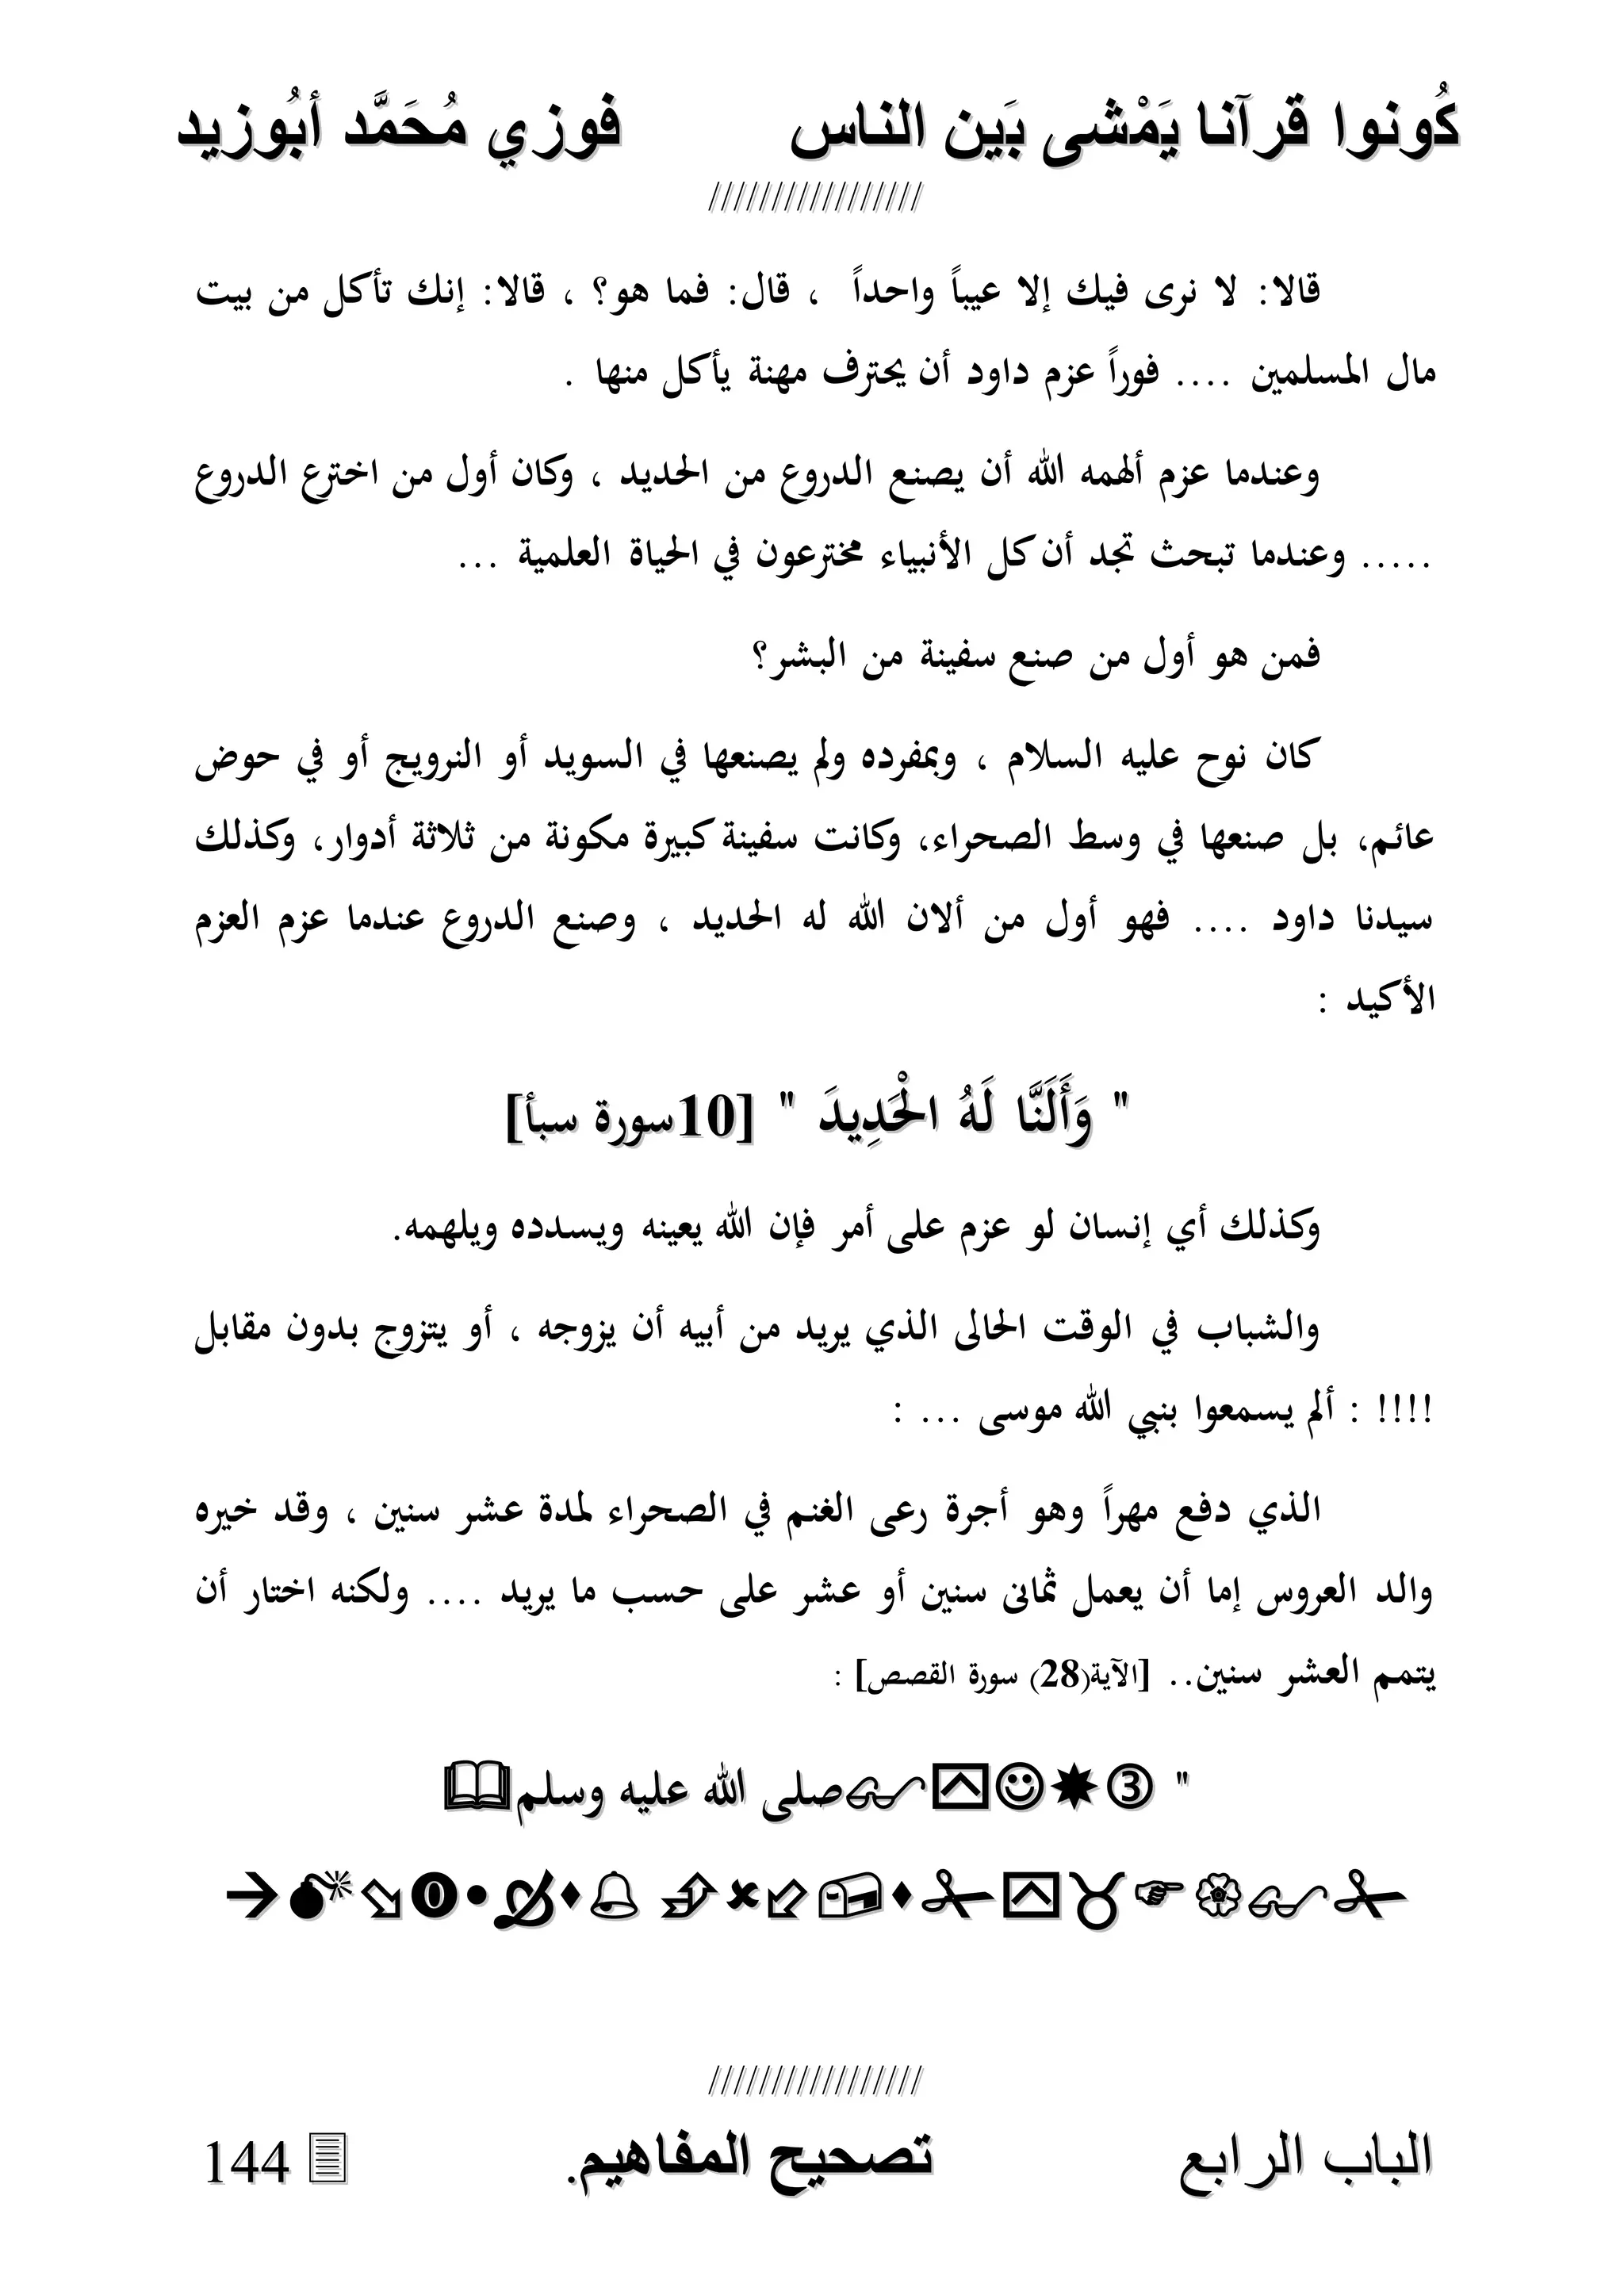 كُونوا قرآنا يَمْشى بَين الناس فوزي مُحَمَّد أبُوزيد
/////////////////
قالا: لا نرى فيك إلا عيباً واحداً ، قال: فما هو؟ ، قالا: إنك تأكل من بيت
مال المسلمين .... فوراً عزم داود أن يحترف مهنة يأكل منها .
وعندما عزم ألهمه الله أن يصنع الدروع من الحديد ، وكان أول من اخترع الدروع
..... وعندما تبحث تجد أن كل الأنبياء مخترعون في الحياة العلمية ...
فمن هو أول من صنع سفينة من البشر؟
كان نوح عليه السلام ، وبمفرده ولم يصنعها في السويد أو النرويج أو في حوض
عائم، بل صنعها في وسط الصحراء، وكانت سفينة كبيرة مكونة من ثلاثة أدوار، وكذلك
سيدنا داود .... فهو أول من ألان الله له الحديد ، وصنع الدروع عندما عزم العزم
الأكيد :
" وَأَلَنَّا لَهُ الْحَدِيدَ " [10سورة سبأ]
وكذلك أي إنسان لو عزم على أمر فإن الله يعينه ويسدده ويلهمه.
والشباب في الوقت الحالى الذي يريد من أبيه أن يزوجه ، أو يتزوج بدون مقابل
!!!! : ألم يسمعوا بنبي الله موسى ... :
الذي دفع مهراً وهو أجرة رعى الغنم في الصحراء لمدة عشر سنين ، وقد خيره
والد العروس إما أن يعمل ثمانى سنين أو عشر على حسب ما يريد .... ولكنه اختار أن
يتمم العشر سنين.. [الآية(28) سورة القصص] :
" صلى الله عليه وسلم
/////////////////
الباب الرابع تصحيح المفاهيم. 144